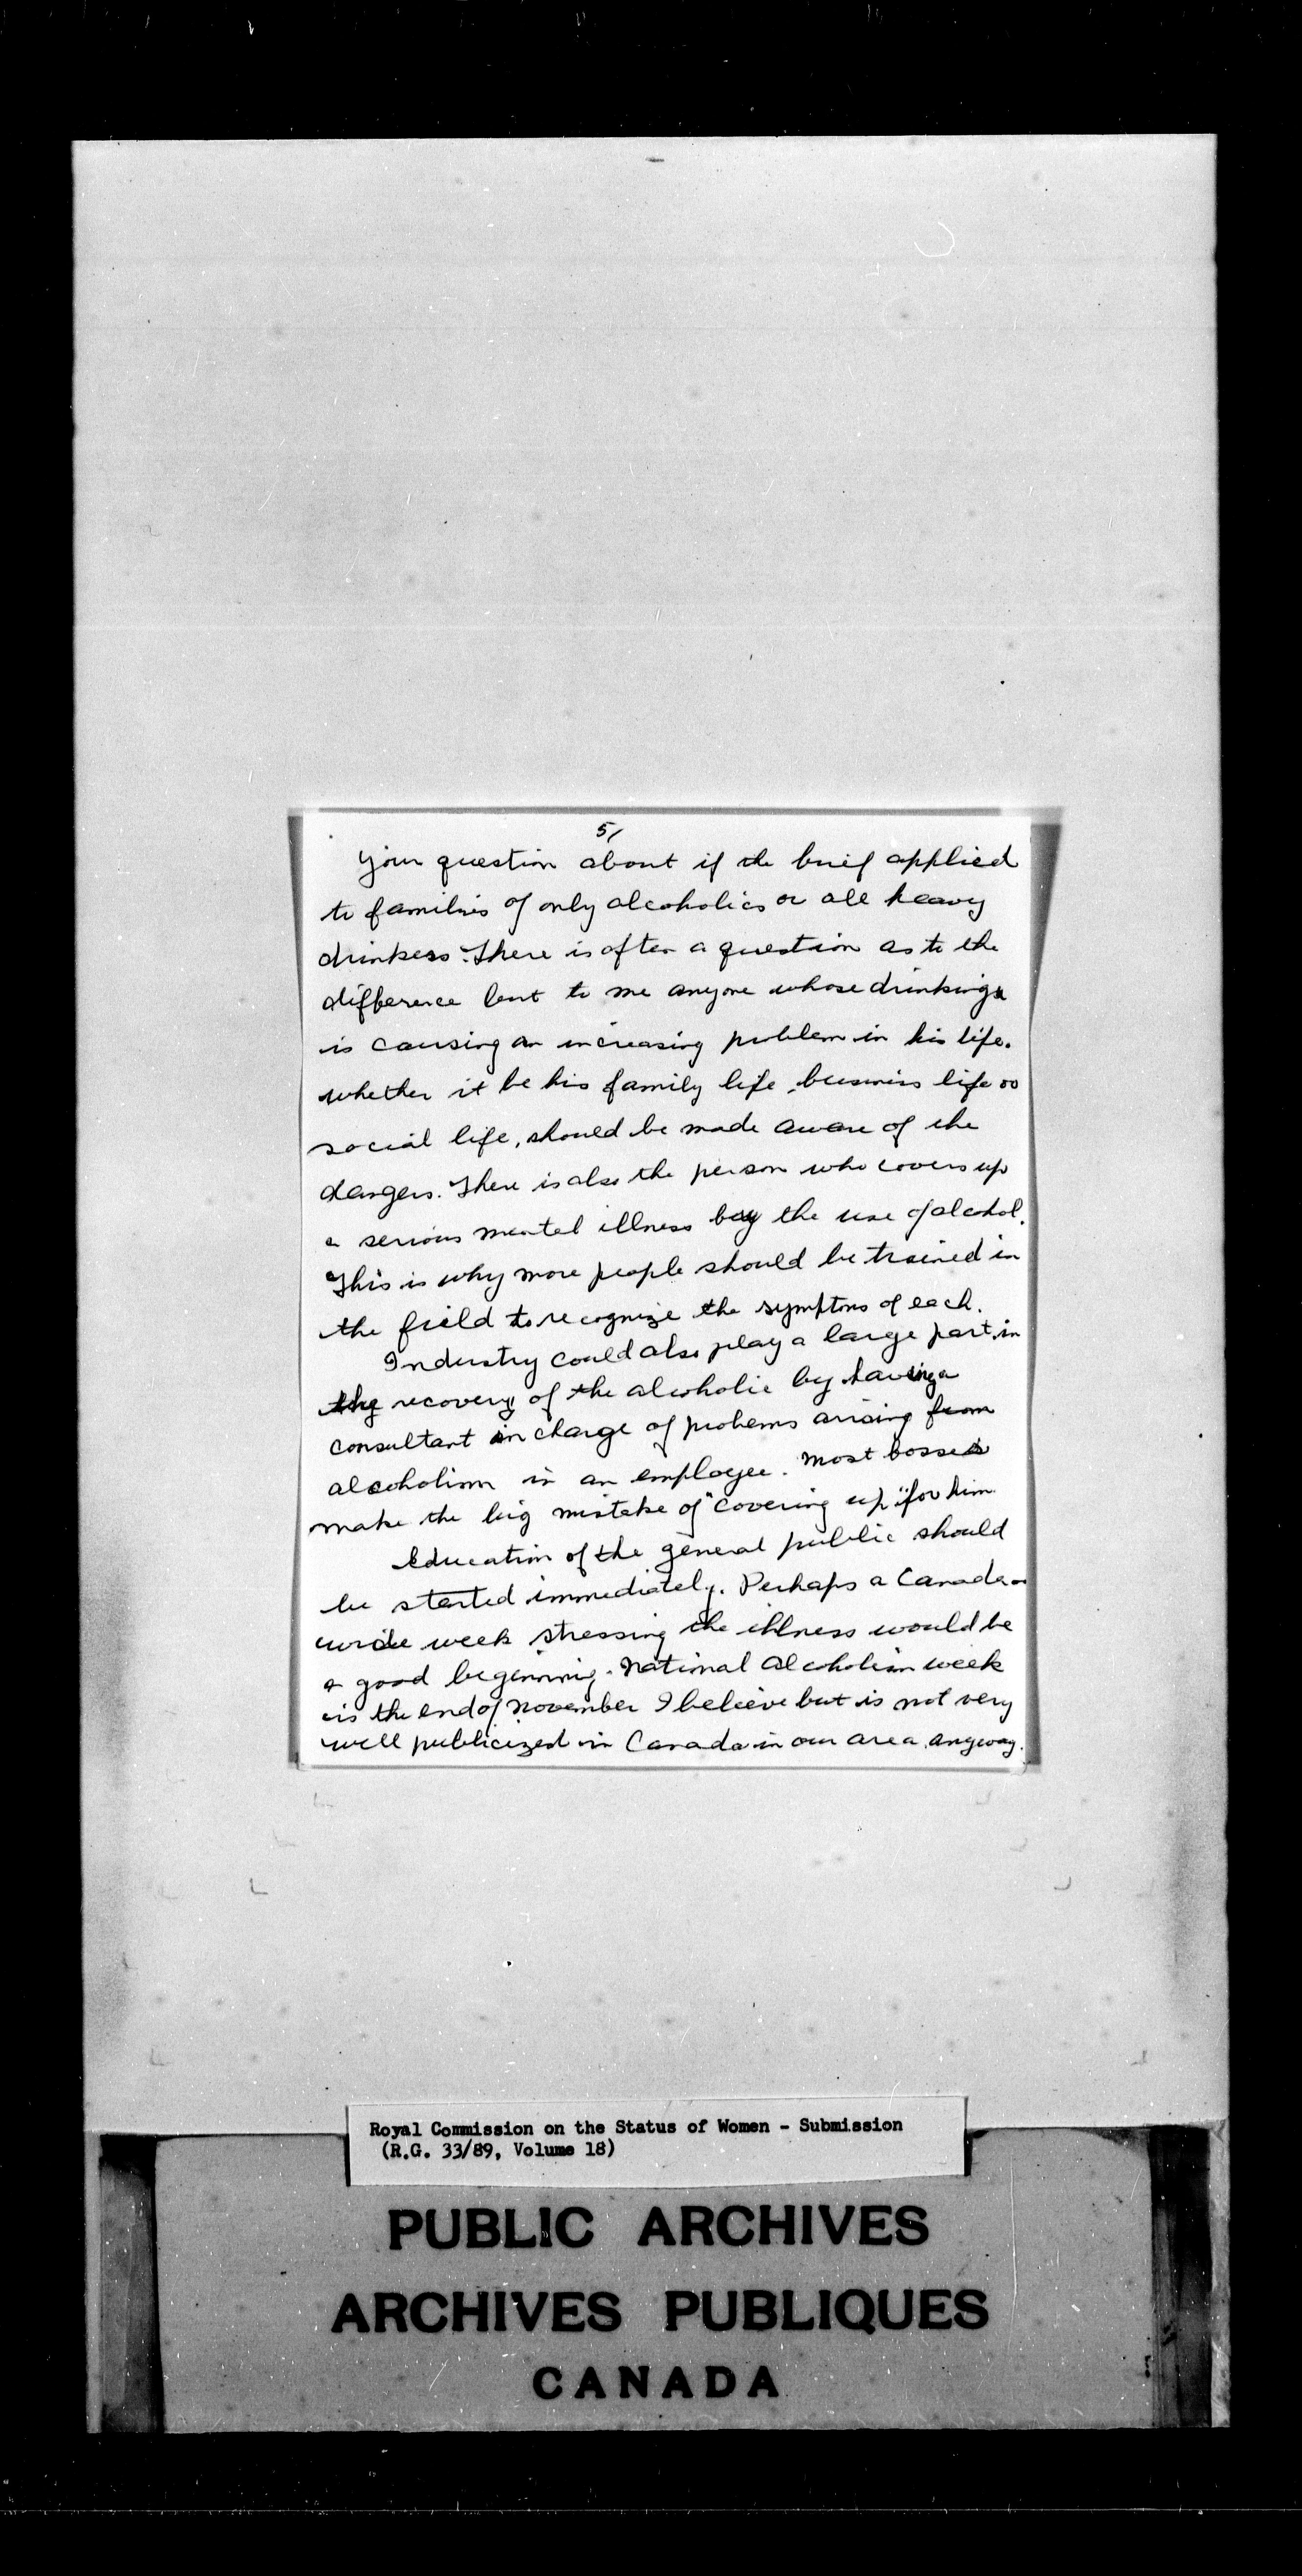 5/
Your question about if the brief applied
to families of only alcoholics or all heavy
drinkers. There is often a question as to the
difference but to me anyone whose drinking
is causing an increasing problem in his life.
whether it be his family life, business life or
social life, should be made aware of the
dangers. There is also the person who covers up
a serious mental illness by the use of alcohol.
This is why more people should be trained in
the field to recognize the symptons of each.
Industry could also play a large part in
the recovery of the alcoholic by having a
consultant in charge of probems arising from
alcoholism in an employee. Most bosses
make the big mistake of "covering up" for him
Education of the general public should
be started immediately. Perhaps a Canada-
wide week stressing the illness would be
a good beginning. National Alcoholism week
is the end of November I believe but is not very
well publicized in Canada in our area, anyway.
Royal Commission on the Status of Women - Submission
(R.G. 33/89, Volume 18)
PUBLIC ARCHIVES
ARCHIVES PUBLIQUES
CANADA